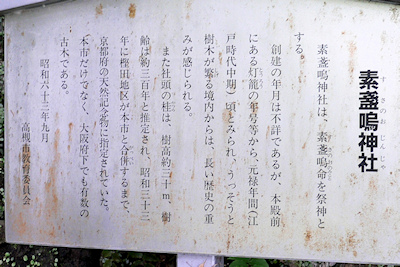 素盞嗚神社
すさのおじんじゃ
素盞嗚神社は、素盞嗚命を祭神と
する。
創建の年月は不詳であるが、本殿前
にある灯籠の年号等から、元禄年間（江
戸時代中期）頃とみられ、うっそうと
樹木が繁る境内からは、長い歴史の重
みが感じられる。
また社頭の桂は、樹高約三十m、樹
齢は約三百年と推定され、昭和三十三
年に樫田地区が本市と合併するまで、
京都府の天然記念物に指定されていた。
本市だけでなく、大阪府下でも有数の
古木である。
昭和六十三年九月
高槻市教育委員会